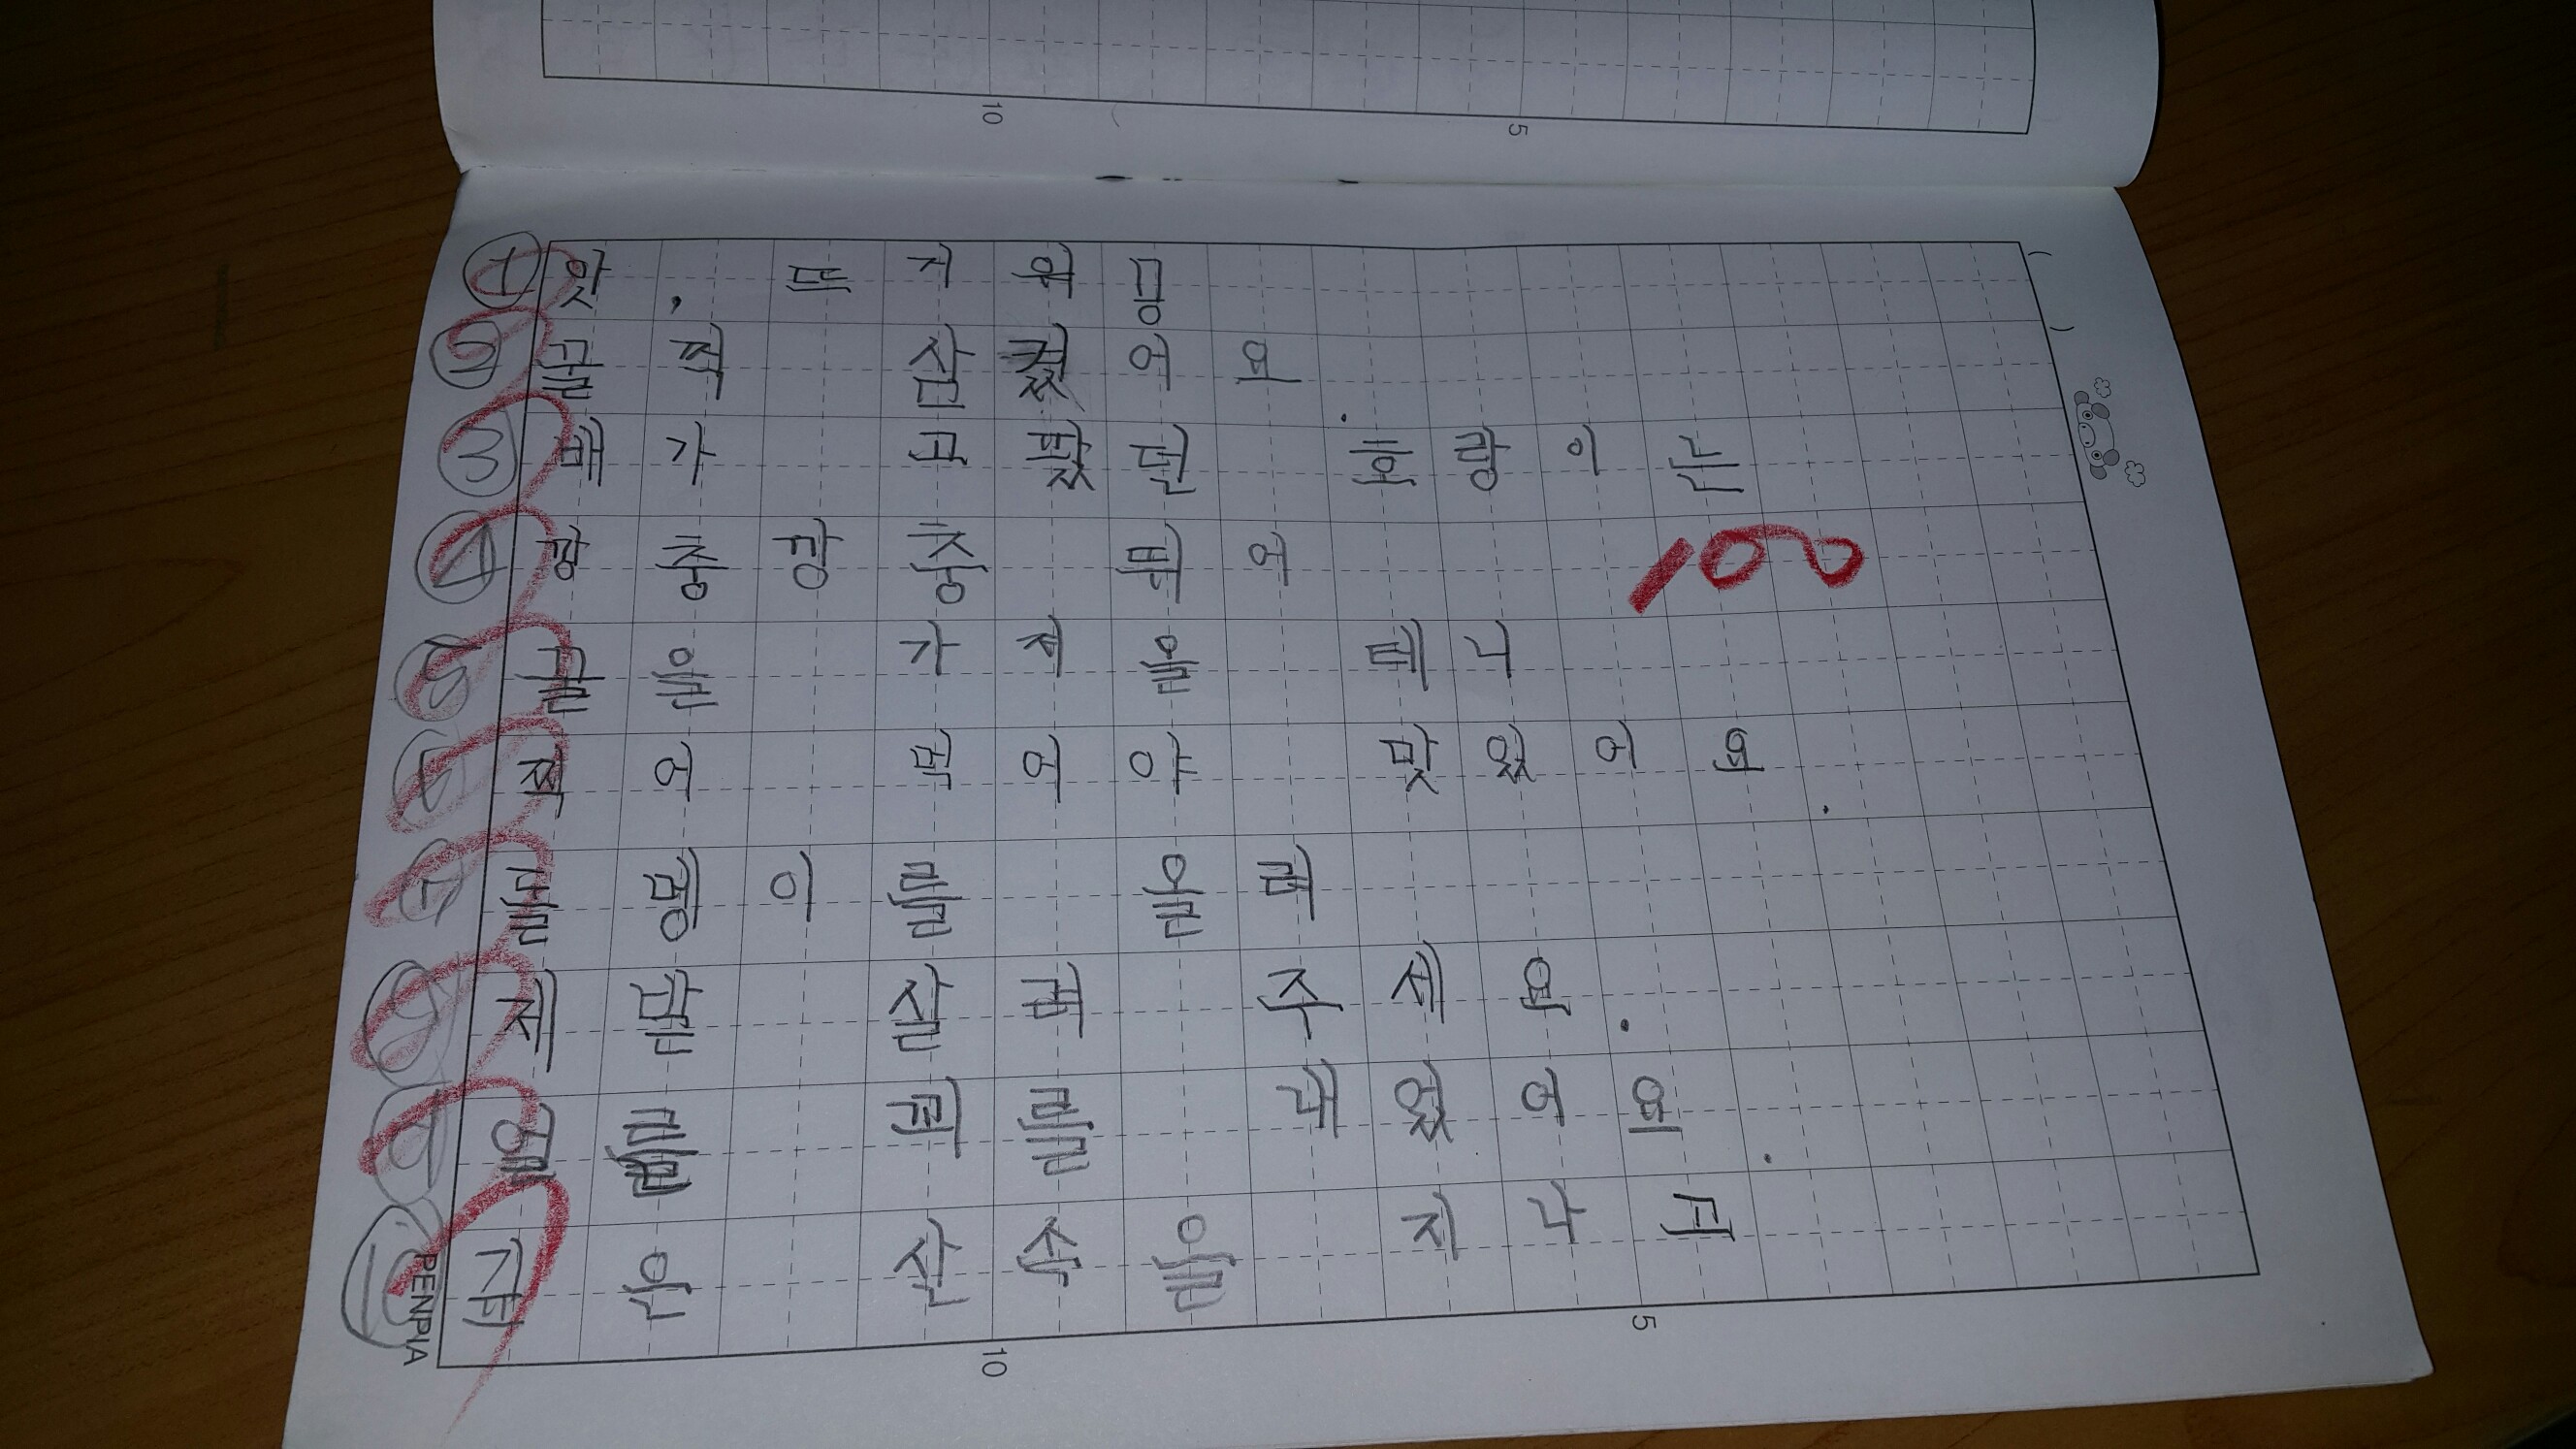 10
5
앗, 뜨거워!
꿀꺽 삼켰어요.
배가 고팠던 호랑이는
깡충깡충 뛰어
꿀을 가져올 테니
찍어 먹어야 맛있어요.
돌멩이를 올려
제발 살려 주세요.
얼른 꾀를 내었어요.
깊은 산속을 지나고
100
① ② ③ ④ ⑤ ⑥ ⑦ ⑧ ⑨ ⑩
PENPIA
10
5